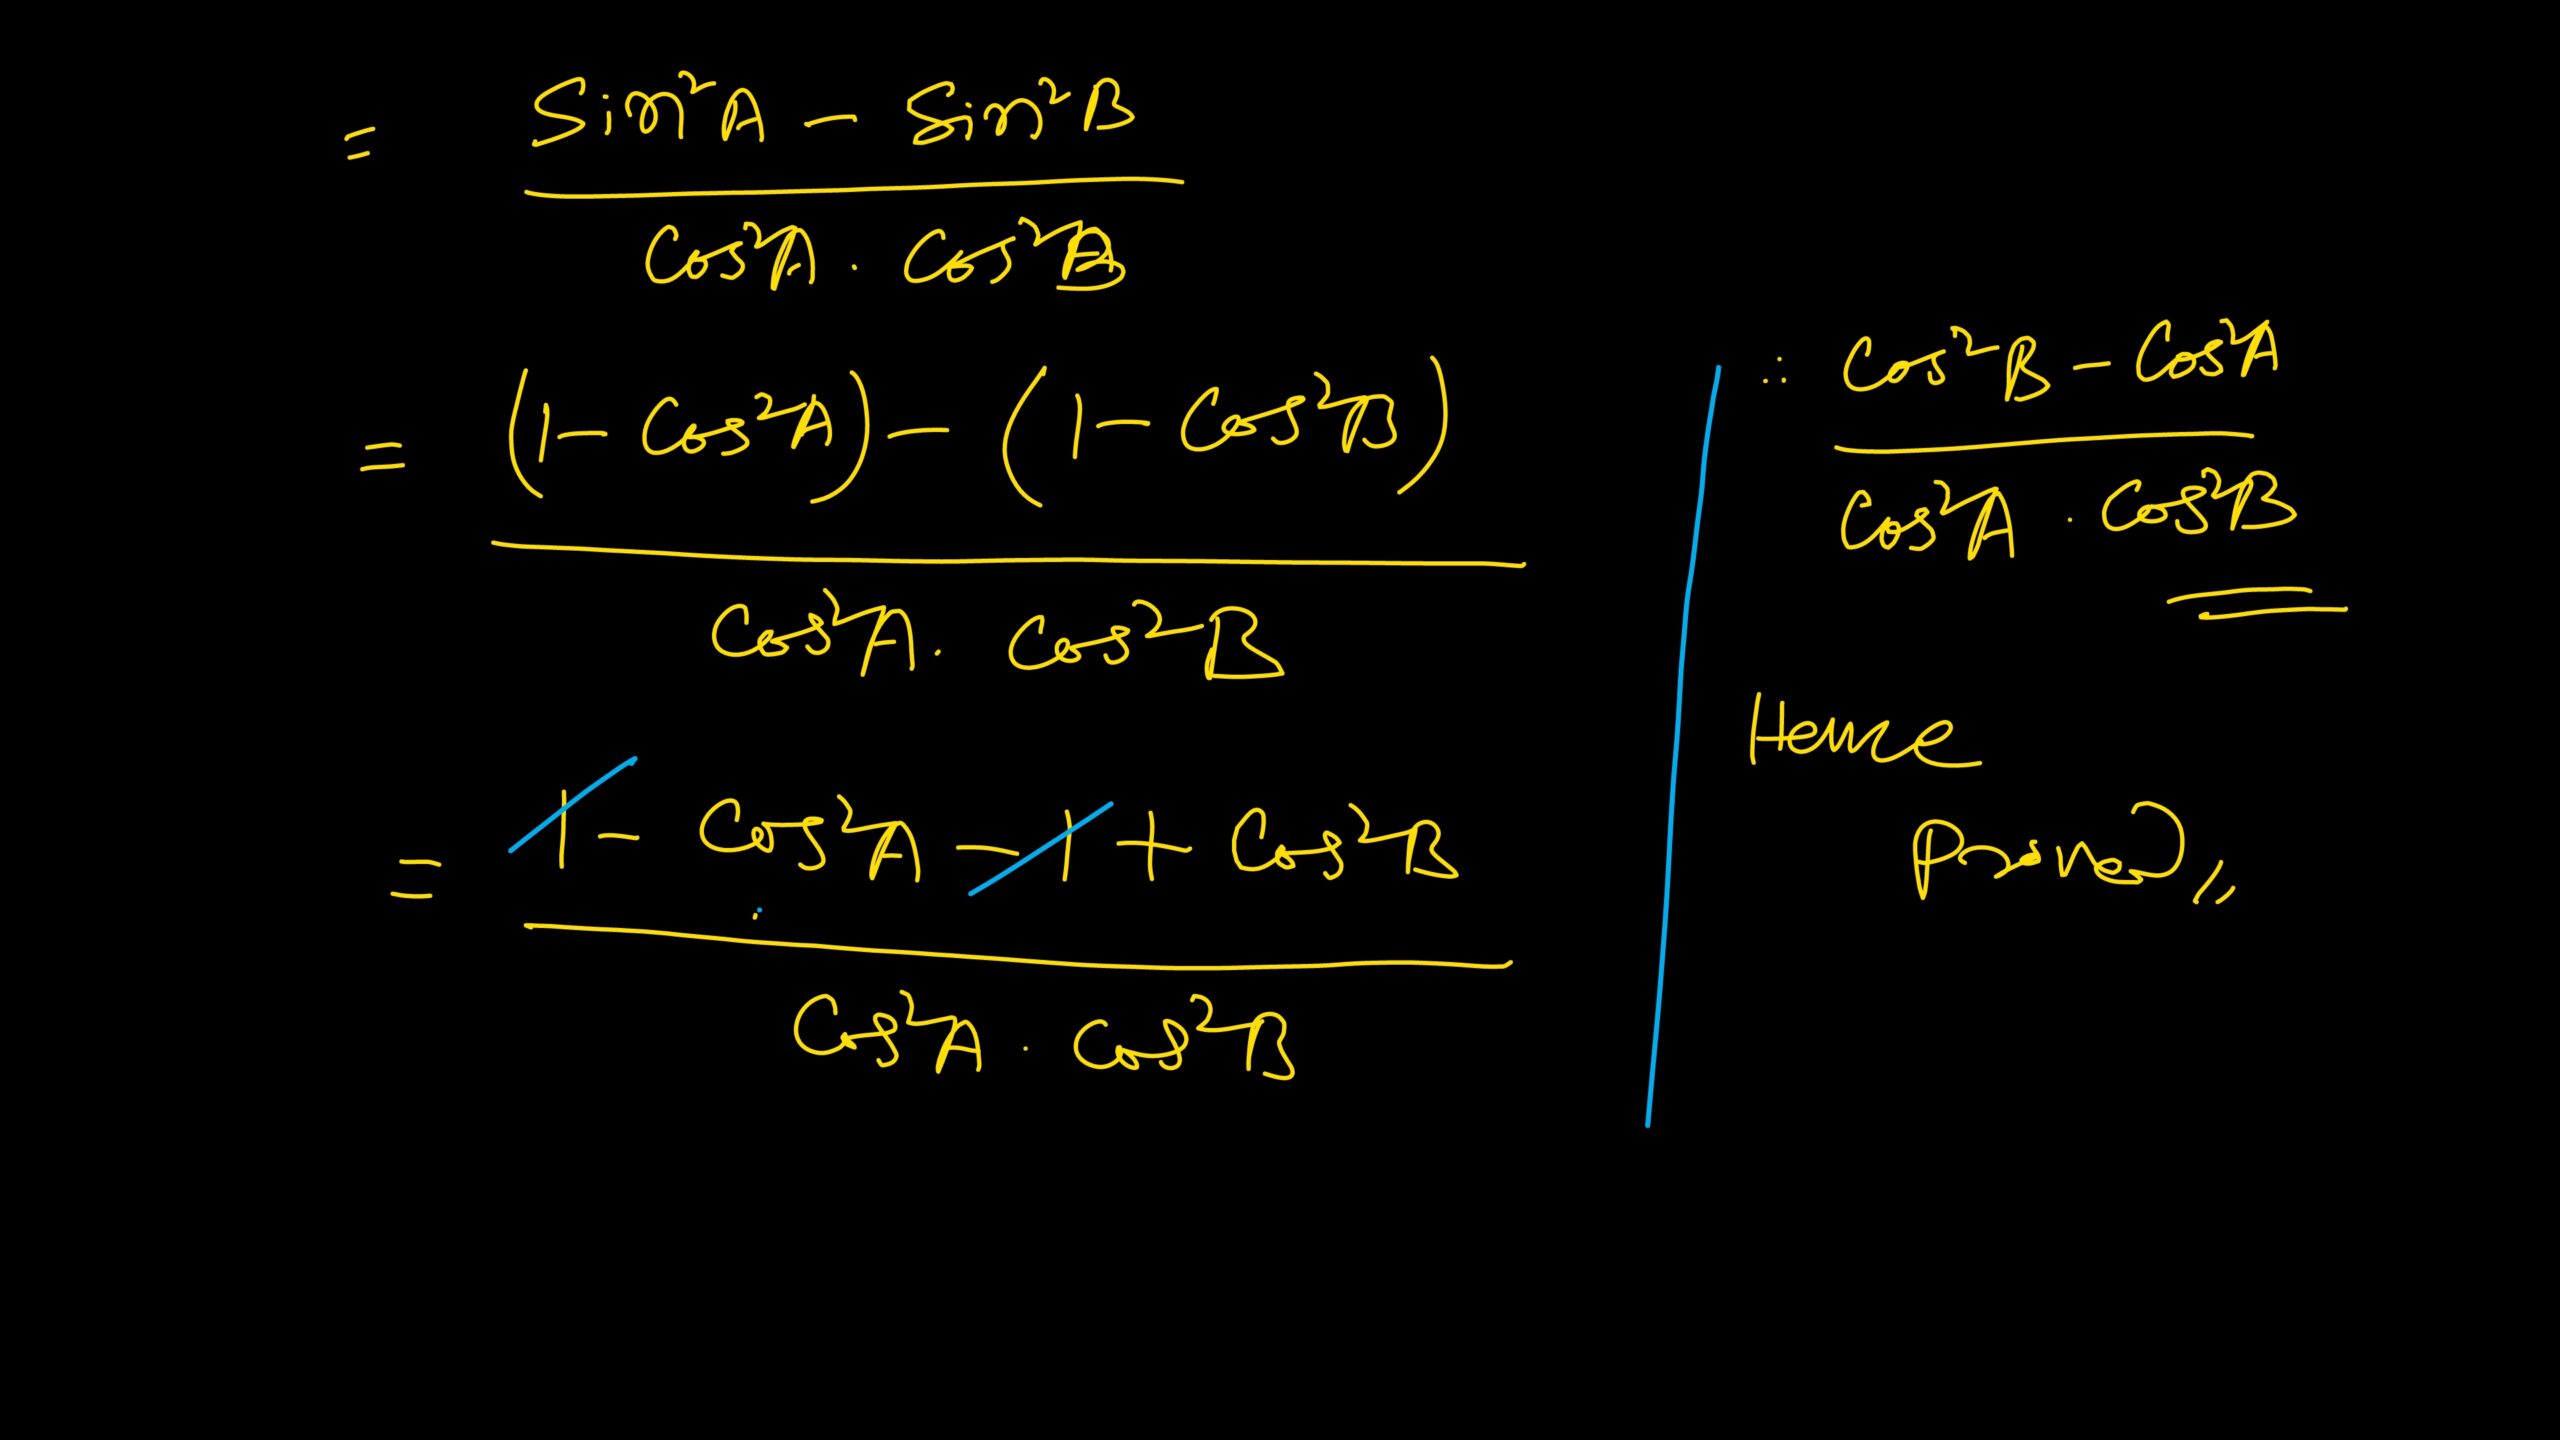 = Sin²A - Sin²B
Cos²A . Cos²B
= (1 - Cos²A) - (1 - Cos²B)
Cos²A . Cos²B
= 1 - Cos²A - 1 + Cos²B
Cos²A . Cos²B
∴ Cos²B - Cos²A
Cos²A . Cos²B
Hence
Proved,,